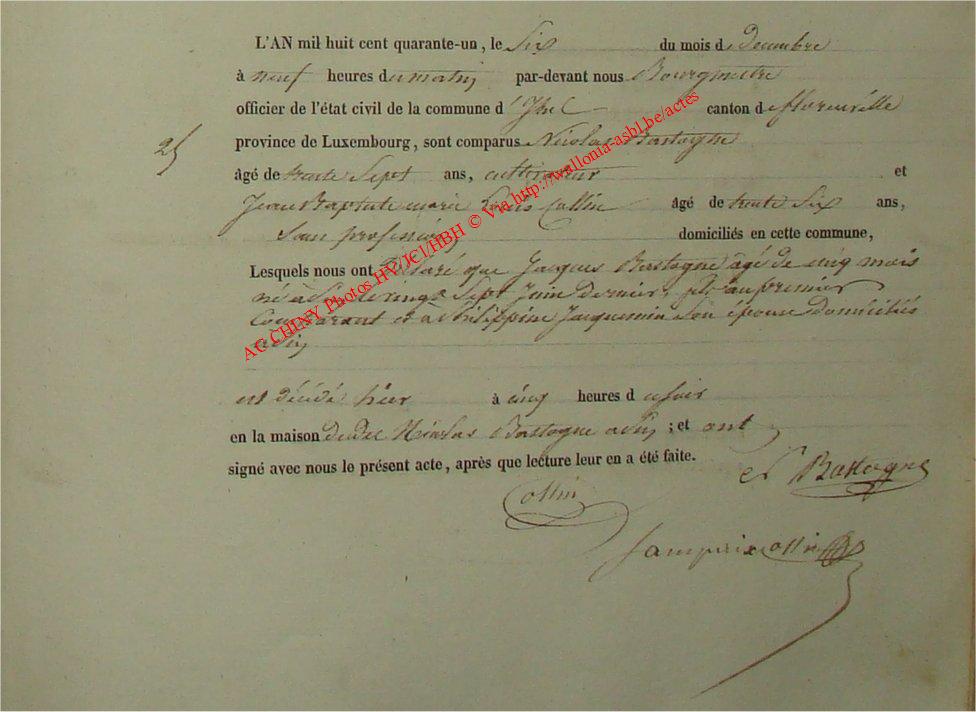 L'AN mil huit cent quarante-un, le Six du mois de decembre
à neuf heures du matin par-devant nous Bourgmestre
officier de l'état civil de la commune d'Izel canton de florenville
25
province de Luxembourg, sont comparus Nicolas Bastogne
âgé de trente Sept ans, cultivateur et
Jean Baptiste marie Louis Collin âgé de trente Six ans,
San profession domiciliés en cette commune,
Lesquels nous ont déclaré que Jacques Bastogne âgé de cinq mois
né à vingt Sept Juin dernier, fils au premier
Comparant et à Philippine Jacquemin Son epouse domiciliés
est décédé hier à cinq heures du soir
en la maison dudit Nicolas Bastogne ; et ont
signé avec nous le présent acte, après que lecture leur en a été faite.
Bastogne
Collin
AC CHINY Photos HV/JCI/HBH © Via http://wallonia-asbl.be/actes